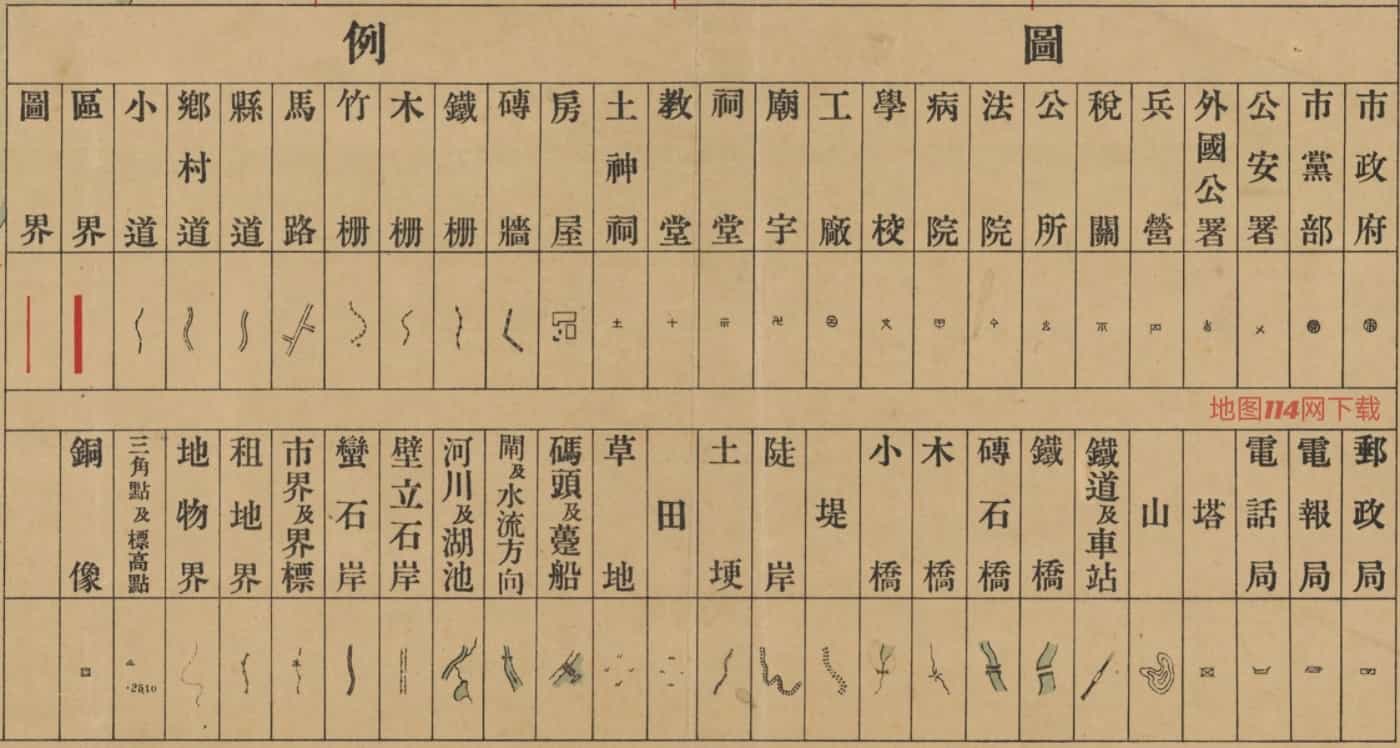 圖例
市政府
市黨部
公安署
外國公署
兵營
稅關
公所
法院
病院
學校
工廠
廟宇
祠堂
教堂
土神祠
房屋
磚牆
鐵柵
木柵
竹柵
馬路
縣道
鄉村道
小道
區界
圖界
地图114网下载
郵政局
電報局
電話局
塔
山
鐵道及車站
鐵橋
磚石橋
木橋
小橋
堤
陡岸
土埂
田
草地
碼頭及躉船
閘及水流方向
河川及湖池
壁立石岸
蠻石岸
市界及界標
租地界
地物界
三角點及標高點
銅像
·2510